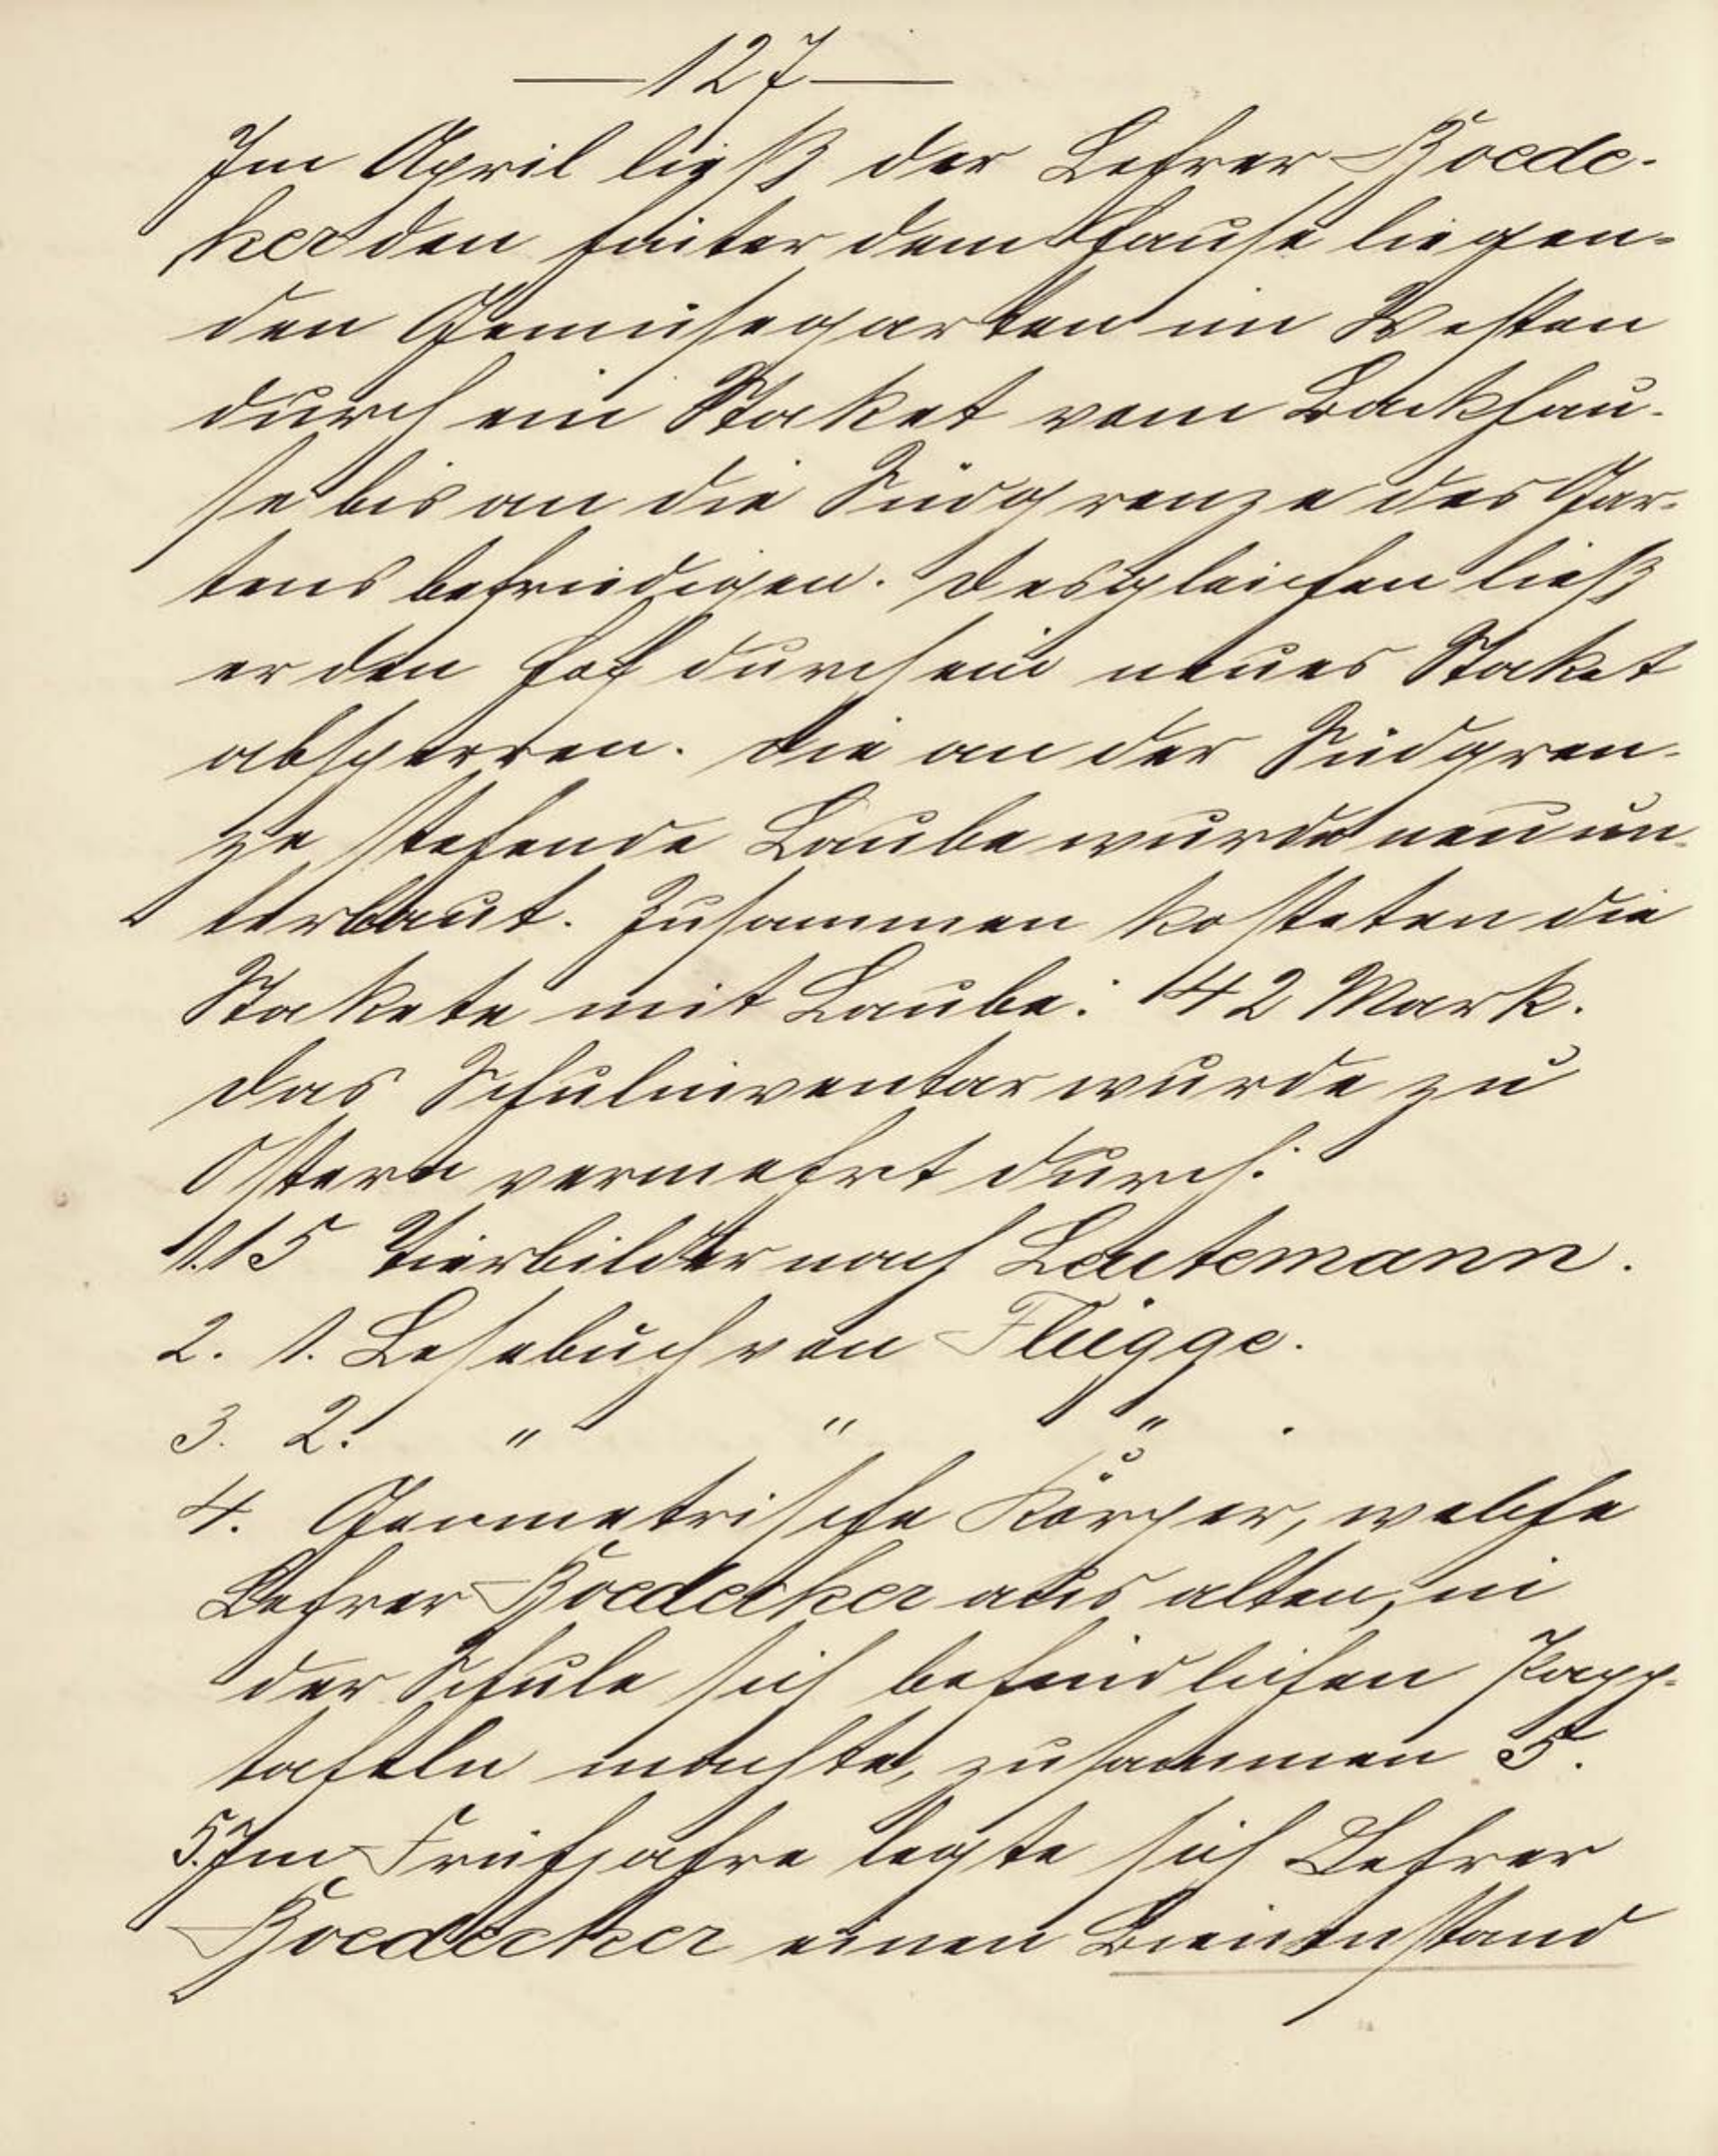 — 127 —
Im April ließ der Lehrer Boede-
ker den hinter dem Hause liegen-
den Gemüsegarten im Westen
durch ein Staket vom Backhau-
se bis an die Südgrenze des Gar-
tens befriedigen. Desgleichen ließ
er den Hof durch ein neues Staket
absperren. Die an der Südgren-
ze stehende Laube wurde neu un-
terbaut. Zusammen kosteten die
Stakete mit Laube: 142 Mark.
Das Schulinventar wurde zu
Ostern vermehrt durch:
1. 15 Tierbilder nach Leutemann.
2. 1. Lesebuch von Flügge.
3. 2. " " " .
4. Geometrische Körper, welche
Lehrer Boedecker aus alten, in
der Schule sich befindlichen Papp-
tafeln machte, zusammen 5.
5. Im Frühjahre legte sich Lehrer
Boedecker einen Bienenstand